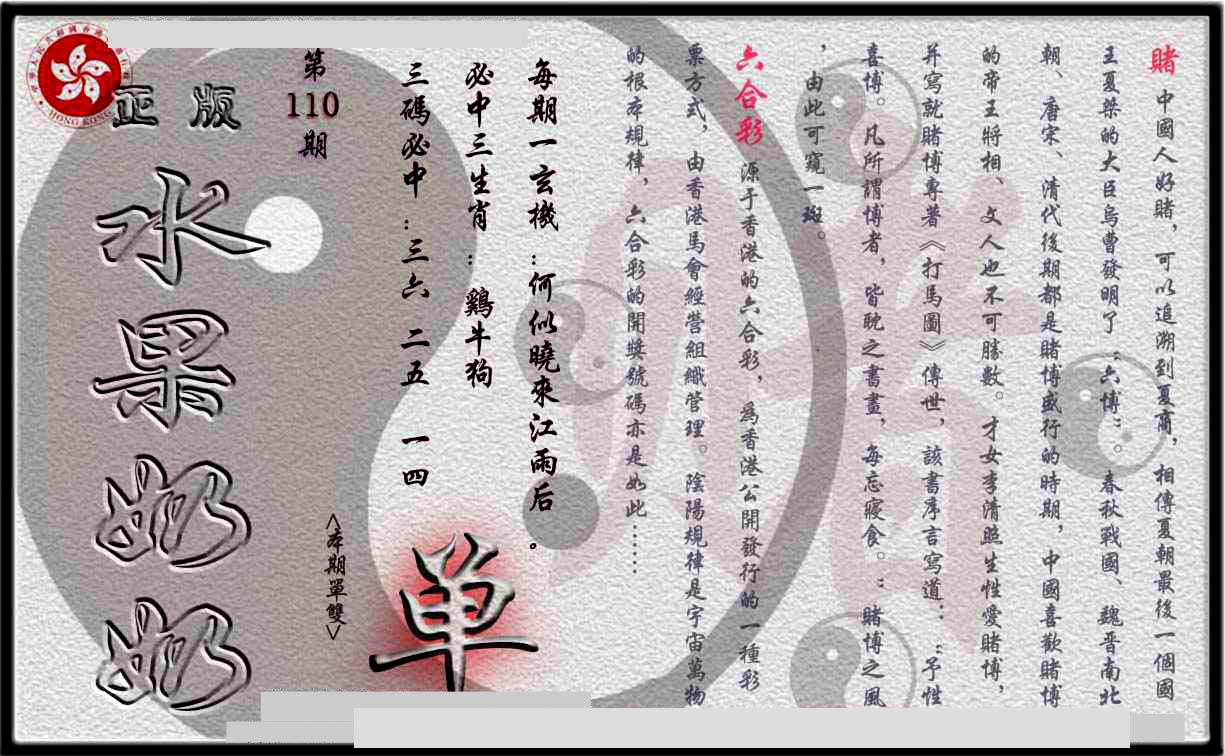 賭 中國人好賭，可以追溯到夏商，相傳夏朝最後一個國
王夏桀的大臣烏曹發明了“六博”。春秋戰國、魏晋南北
朝、唐宋、清代後期都是賭博盛行的時期，中國喜歡賭博
的帝王將相、文人也不可勝數。才女李清照生性愛賭博，
并寫就賭博專著《打馬圖》傳世，該書序言寫道：“予性
喜博。凡所謂博者，皆耽之書畫，每忘寢食。”賭博之風
，由此可窺一斑。
六合彩 源于香港的六合彩，爲香港公開發行的一種彩
票方式，由香港馬會經營組織管理。陰陽規律是宇宙萬物
的根本規律，六合彩的開獎號碼亦是如此……
每期一玄機：何似曉來江雨后。
必中三生肖：鷄牛狗
三碼必中：三六 二五 一四
<本期單雙>
单
第
110
期
正版
水果奶奶
HONG KONG